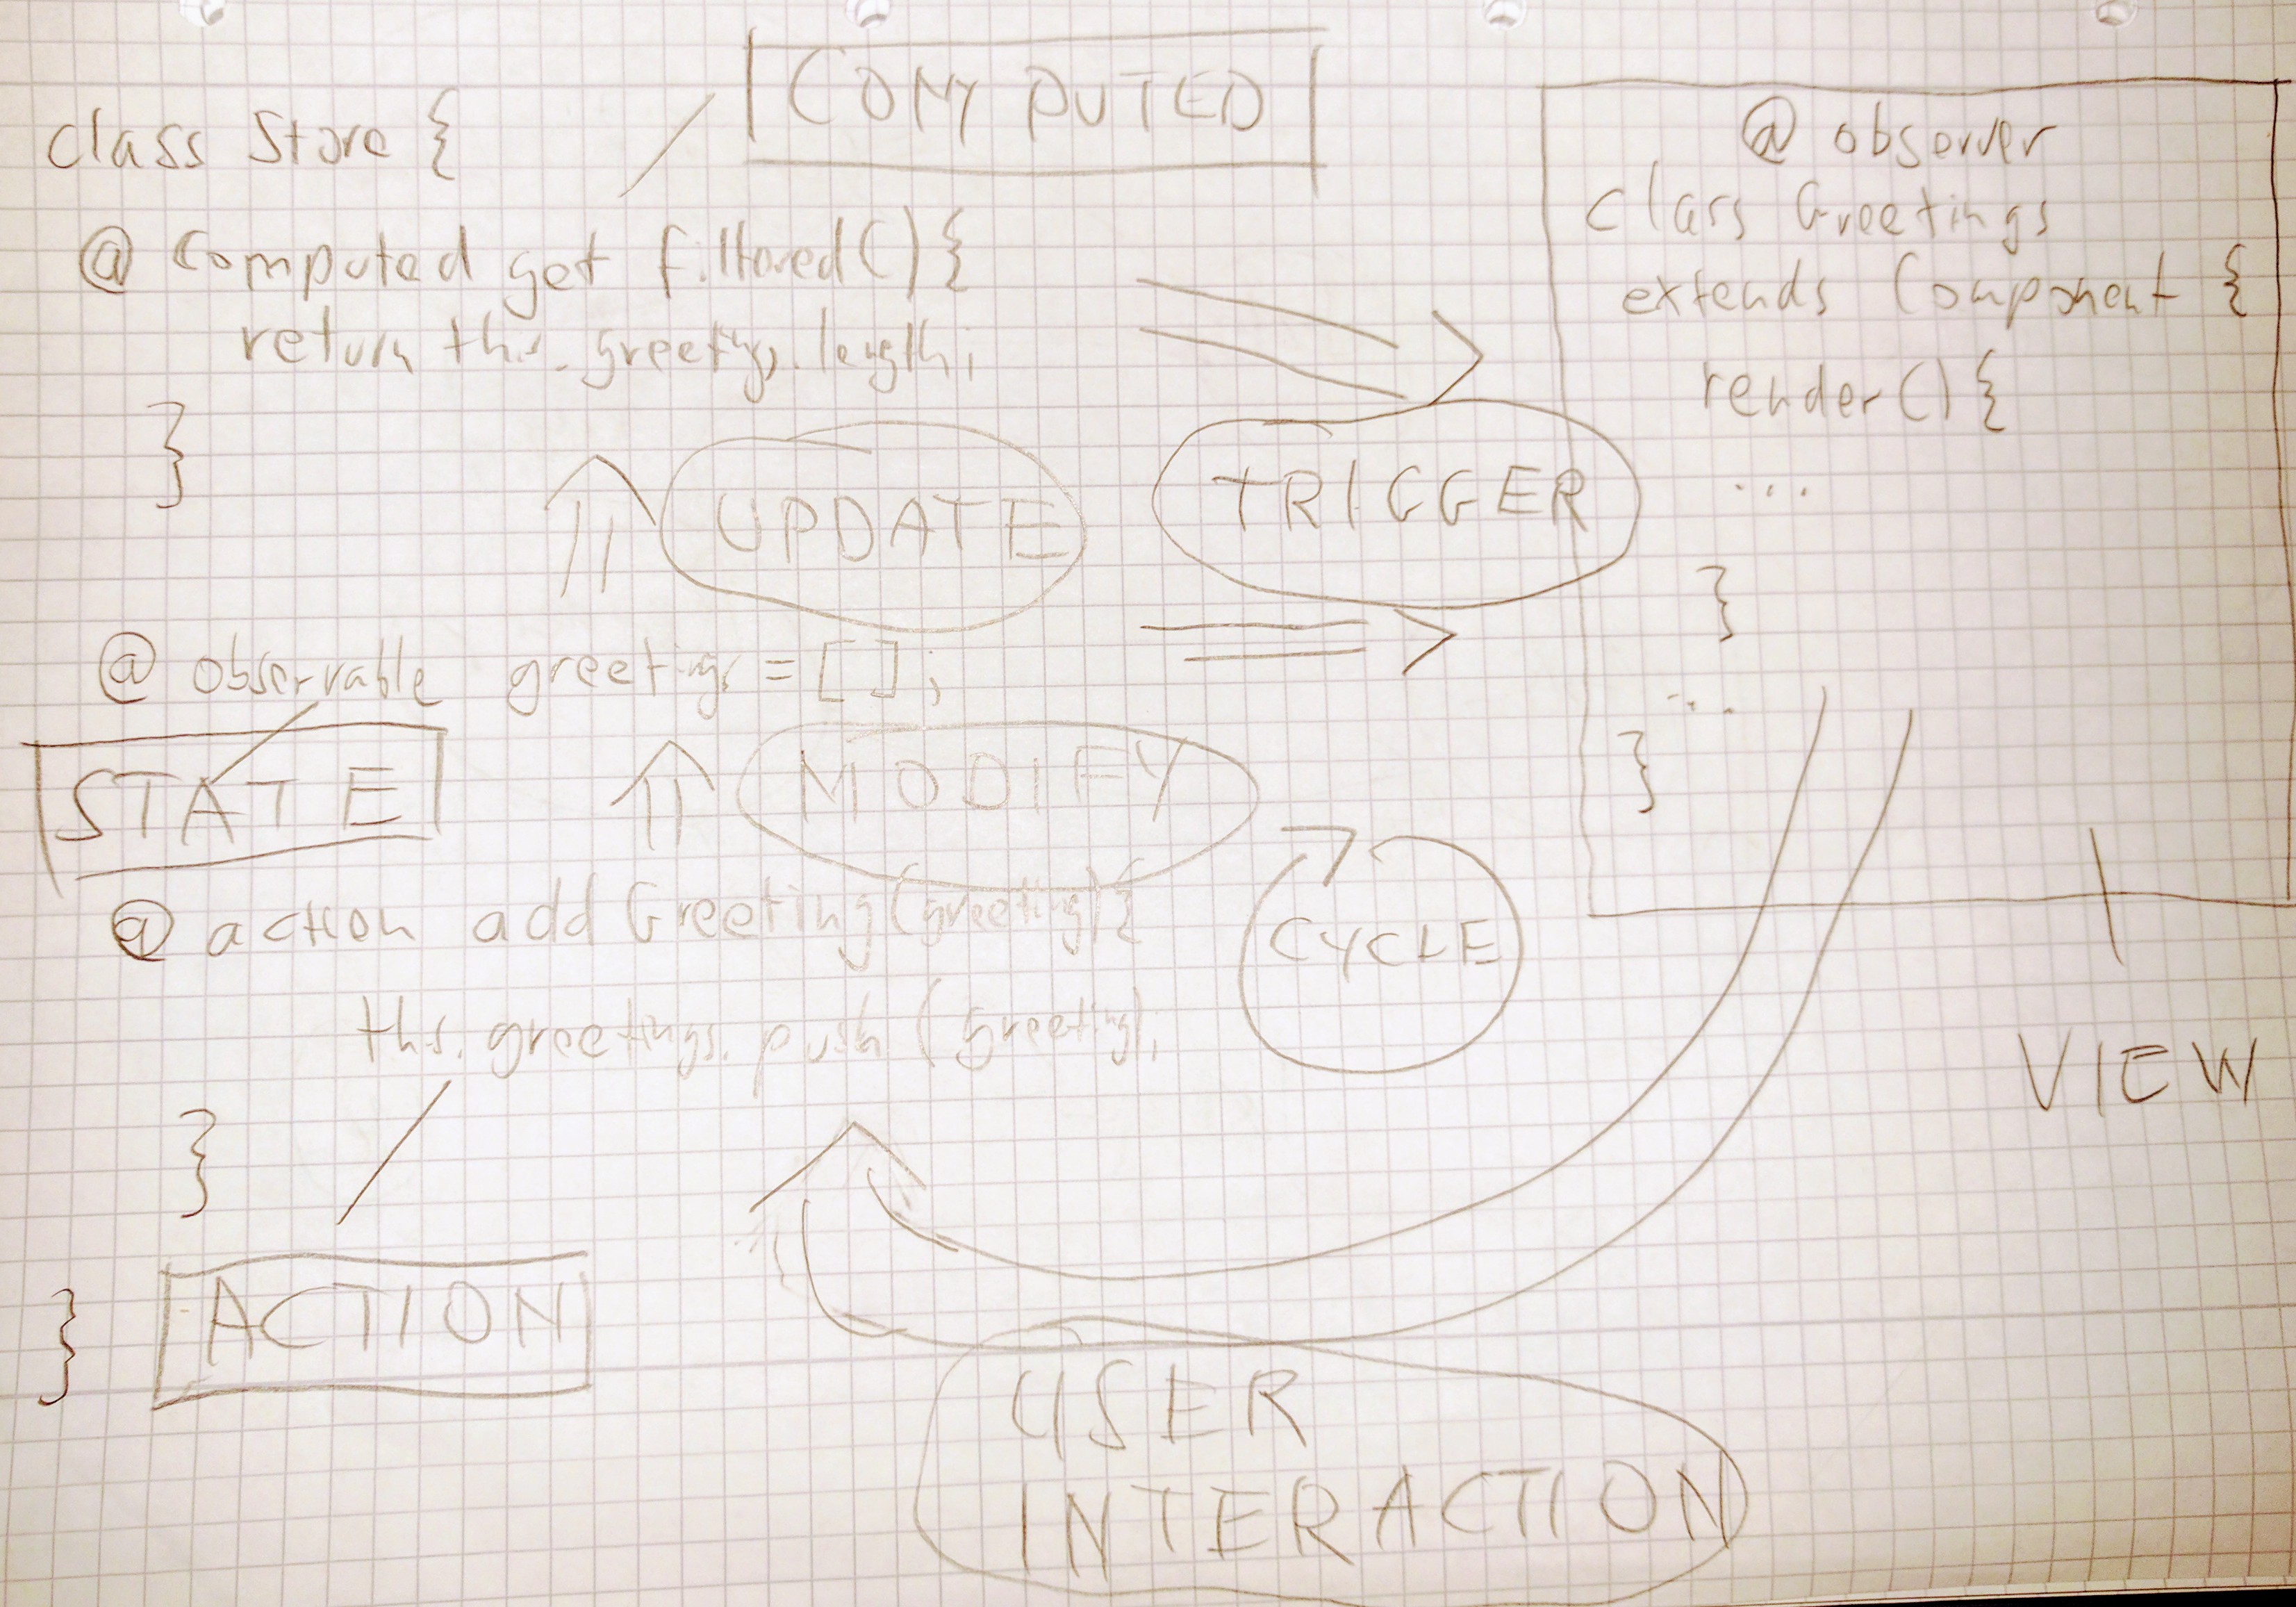 COMPUTED
class Store {
@ Computed get filtered() {
return this.greetings.length;
}
UPDATE
TRIGGER
@ observable greetings = [];
STATE
MODIFY
@ action addGreeting(greeting) {
this.greetings.push(greeting);
}
ACTION
}
CYCLE
USER
INTERACTION
@ observer
class Greetings
extends Component {
render() {
...
}
...
}
VIEW